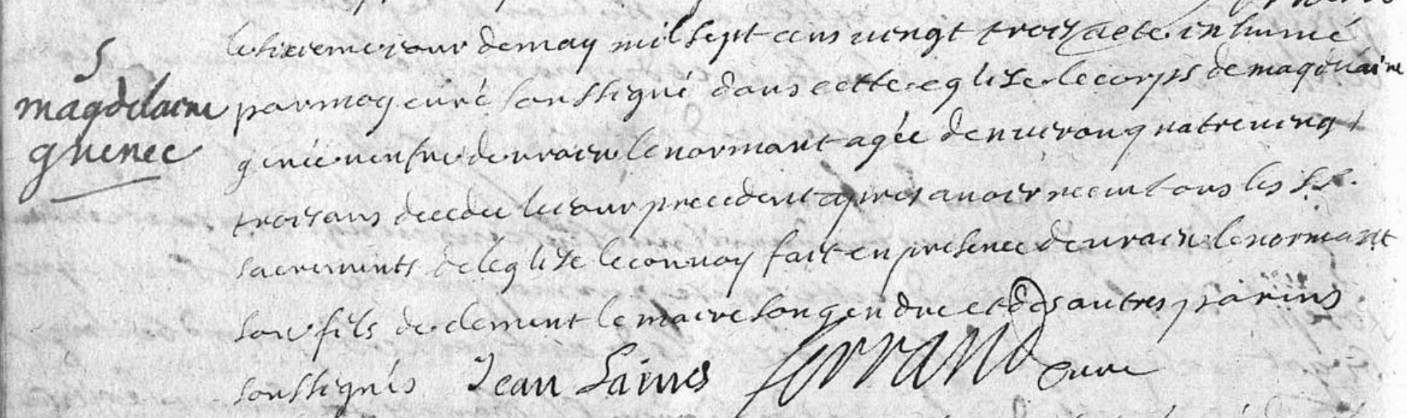 S
magdelaine
guenee
le sixieme jour de may mil sept cens vingt trois a ete inhumé
par moy curé soussigné dans cette eglise le corps de magdelaine
genée veufve de urain le normant agée denviron quatrevingt
trois ans decedee le jour precedent apres avoir receu tous les SS.
sacrements de leglise le convoy fait en presence de urain le normant
son fils de clement le maire son gendre et des autres parens
soussignés Jean Laines ferrand Curé